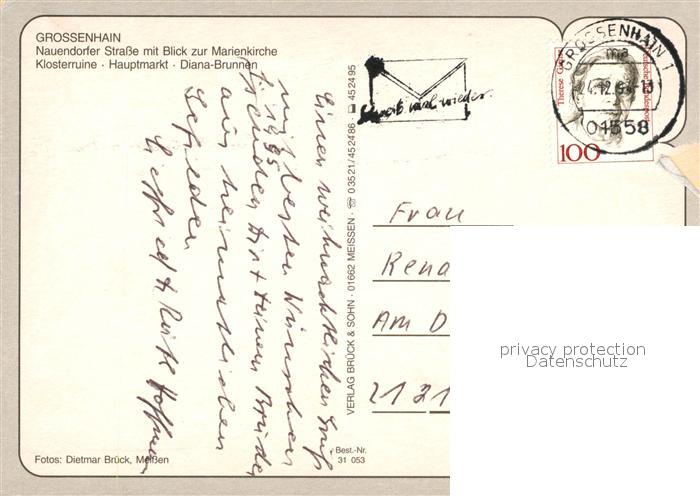 GROSSENHAIN
Nauendorfer Straße mit Blick zur Marienkirche
Klosterruine · Hauptmarkt · Diana-Brunnen
Einen weihnachtlichen Gruß
mit besten Wünschen
f. 1995
senden Dir + Deinem Bruder
aus heimatlichen
Gefilden
Siegfried + Ruth Hoffmann
VERLAG BRÜCK & SOHN · 01662 MEISSEN · ☏ 03521/452486 452495
Schreib mal wieder.
GROSSENHAIN 1
ma
24.12.94-13
01558
Deutsche Bundespost
100
Frau
Rena
Am D
2121
privacy protection
Datenschutz
Fotos: Dietmar Brück, Meißen
Best.-Nr.
31 053